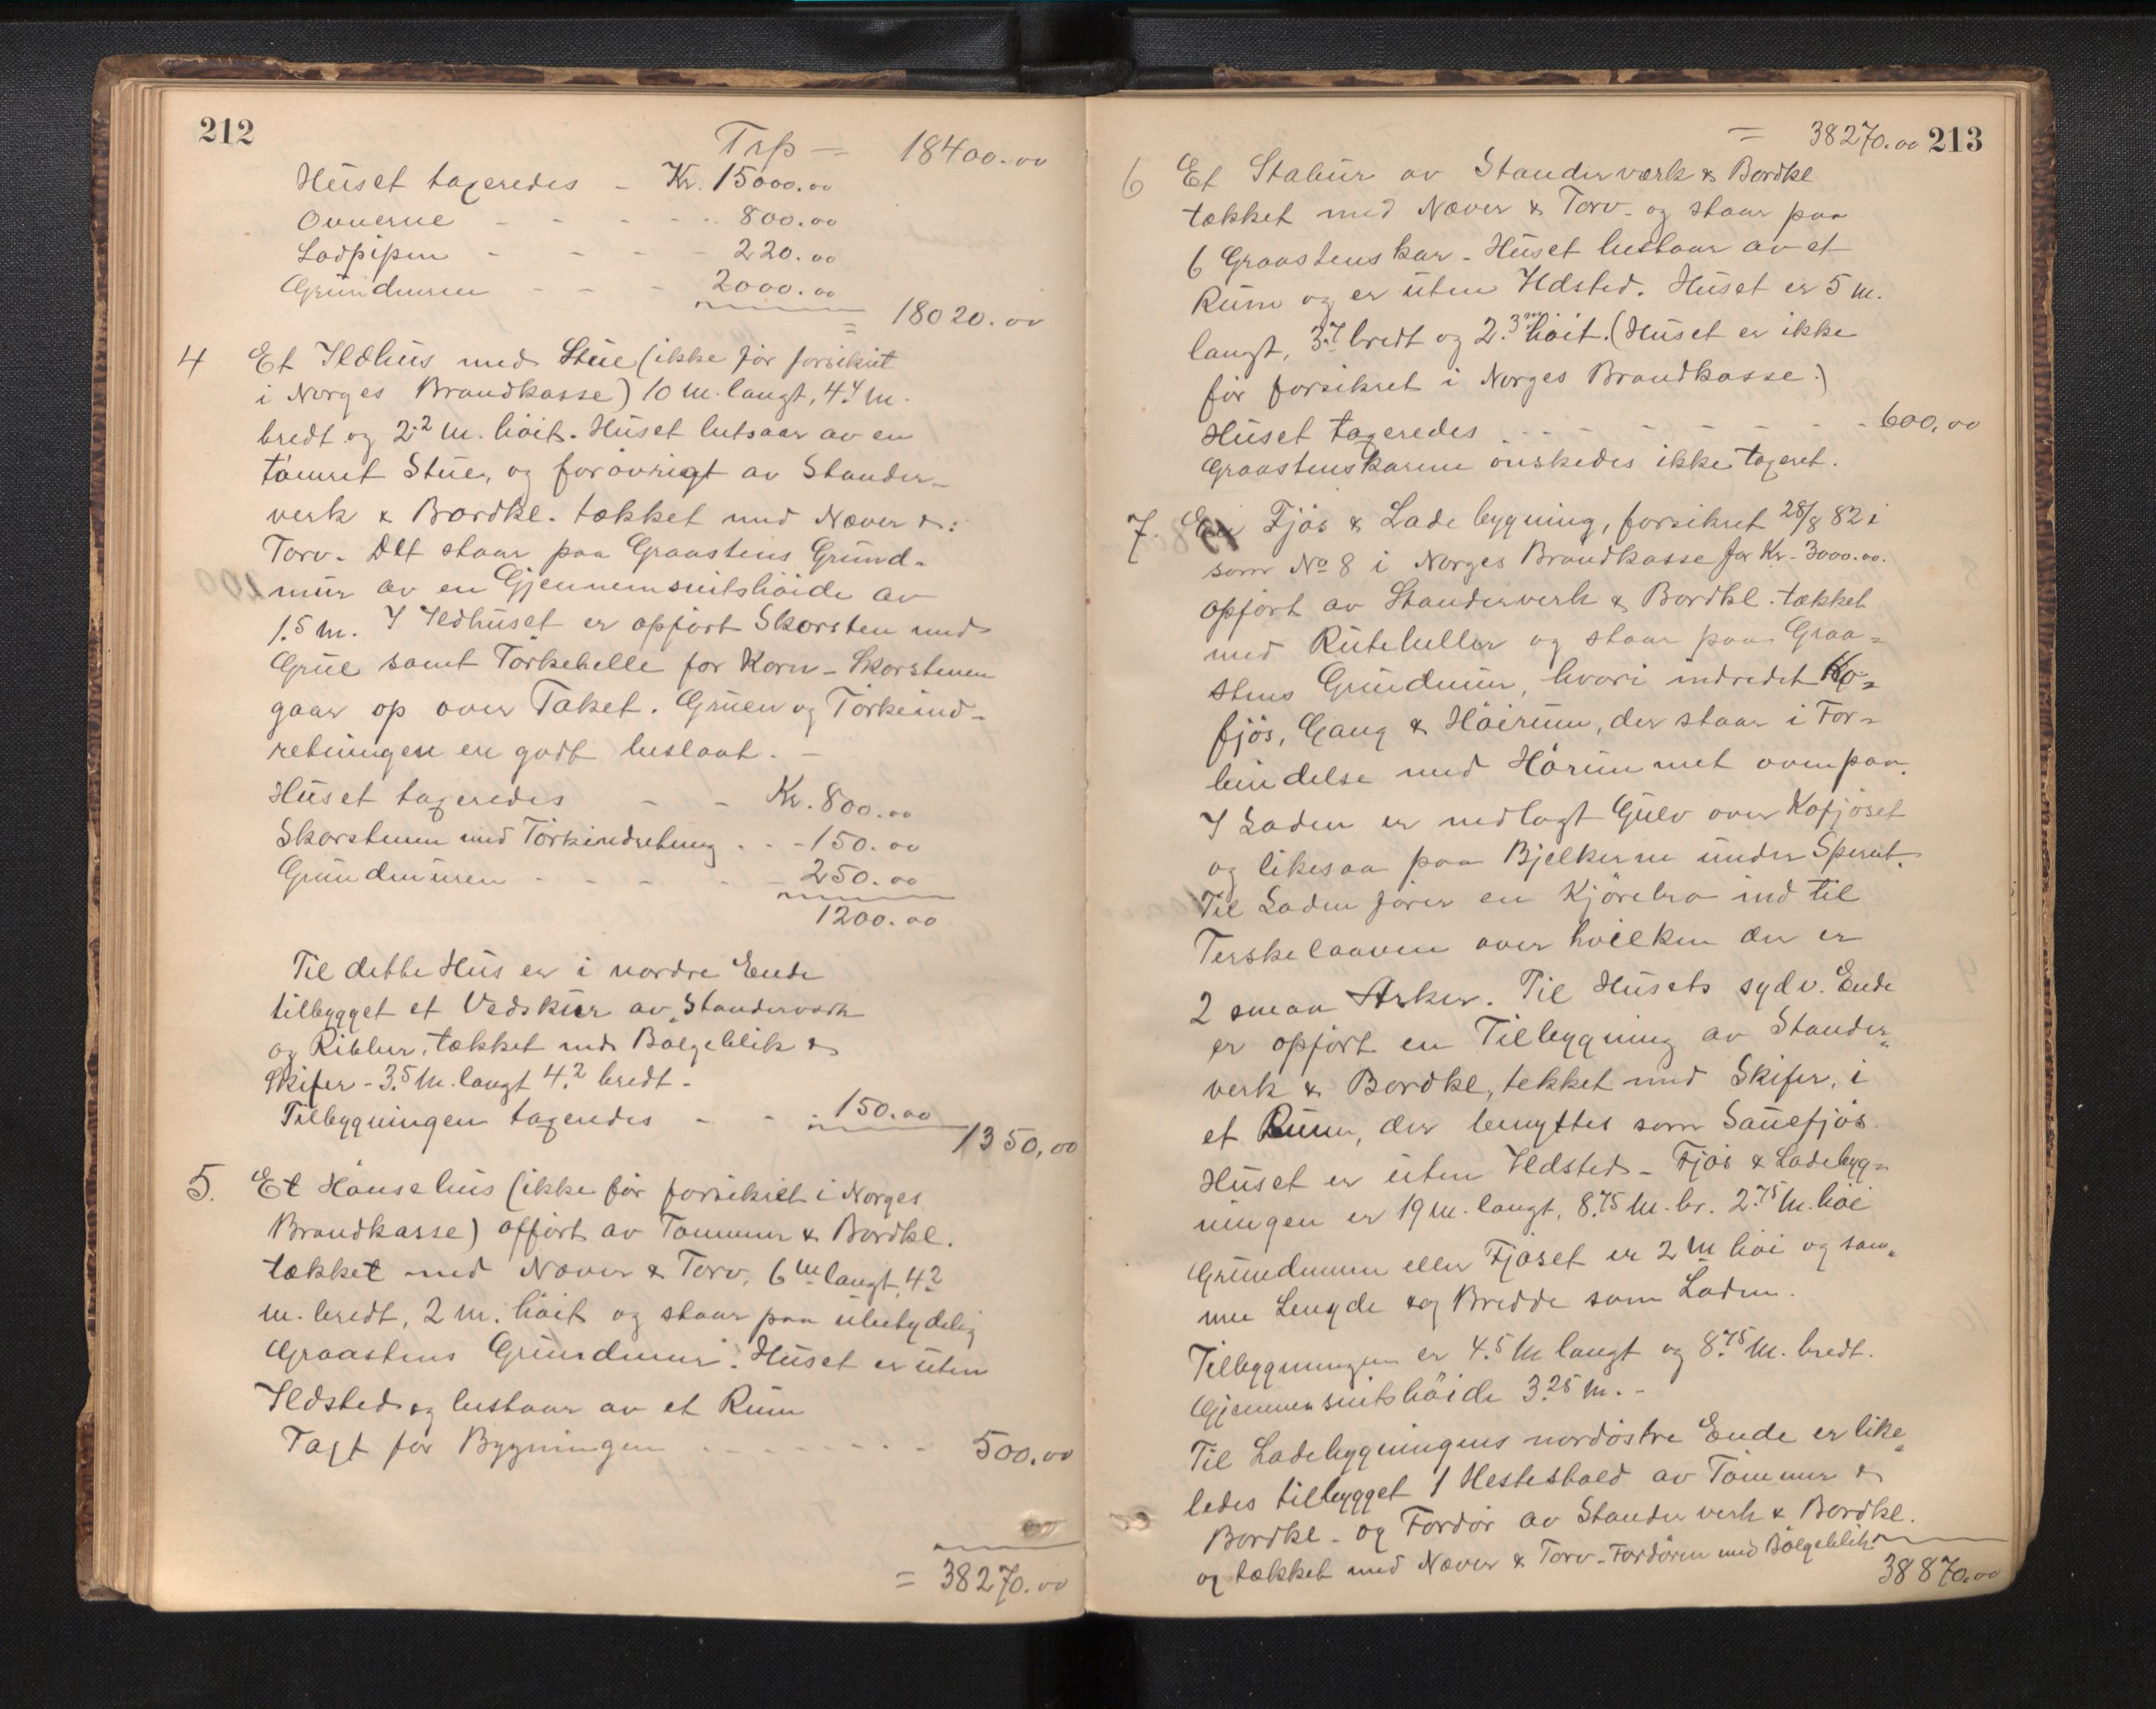 212
Trp = 18400.00
Huset taxeredes - Kr. 15000.00
Ovnerne - - - - - 800.00
Lodpipen - - - - 220.00
Grundmuren - - - 2000.00
= 18020.00
4 Et Ildhus med Stue (ikke før forsikret
i Norges Brandkasse) 10 m. langt, 4.4 m.
bredt og 2.2 m. høit. Huset bestaar av en
tømret Stue, og forøvrigt av Stander-
verk & Bordkl. tækket med Næver &:
Torv. Det staar paa Graastens Grund-
mur av en Gjennemsnitshøide av
1.5 m. I Ildhuset er opført Skorsten med
Grue samt Tørkehelle for Korn - Skorstenen
gaar op over Taket. Gruen og Tørkeind-
retningen er godt beslaat. -
Huset taxeredes - - Kr. 800.00
Skorstenen med Tørkindretning . . - 150.00
Grundmuren - - - - - 250.00
1200.00
Til dette Hus er i nordre Ende
tilbygget et Vedskur av Standerverk
og Ribber, tækket med Bølgeblik &
Skifer - 3.5 m. langt 4.2 bredt -
Tilbygningen taxeredes - - . 150.00
1350.00
5. Et Hønsehus (ikke før forsikret i Norges
Brandkasse) opført av Tømmer & Bordkl.
tækket med Næver & Torv, 6 m langt, 4.2
m. bredt, 2 m. høit og staar paa ubetydelig
Graastens Grundmur. Huset er uten
Ildsted og bestaar av et Rum
Taxt før Bygningen - - - - - - - 500.00
= 38270.00
= 38270.00 213
6 Et Stabur av Standerværk & Bordkl
tækket med Næver & Torv - og staar paa
6 Graastenskar - Huset bestaar av et
Rum og er uten Ildsted. Huset er 5 m.
langt, 3.7 bredt og 2.3 m høit. (Huset er ikke
før forsikret i Norges Brandkasse.)
Huset taxeredes . - - - - - - - - 600.00
Graastenskarene ønskedes ikke taxeret.
7. Et Fjøs & Lade bygning, forsikret 28/8 82 i
som No 8 i Norges Brandkasse for Kr. 3000.00.
opført av Standerverk & Bordkl. tækket
med Ruteheller og staar paa Graa=
stens Grundmur, hvori indredet Ko=
fjøs, Gang & Høirum, der staar i For=
bindelse med Hørummet ovenpaa.
I Laden er nedlagt Gulv over Kofjøset
og likesaa paa Bjelkerne under Sperret.
Til Laden fører en Kjørebro ind til
Terskelaaven over hvilken der er
2 smaa Arker. Til Husets sydv. Ende
er opført en Tilbygning av Stander=
verk & Bordkl, tekket med Skifer, i
et Rum, der benyttes som Sauefjøs.
Huset er uten Ildsted - Fjøs & Ladebyg=
ningen er 19 m. langt, 8.75 m. br. 2.75 m. høi
Grundmuren eller Fjøset er 2 m høi og sam=
me Lengde og Bredde som Laden.
Tilbygningen er 4.5 m langt og 8.75 m. bredt.
Gjennemsnitshøide 3.25 m. -
Til Ladebygningens nordøstre Ende er like=
ledes tilbygget 1 Hestestald av Tømmer &
Bordkl - og Fordør av Standerverk & Bordkl.
og tækket med Næver & Torv - Fordøren med Bølgeblik
38870.00